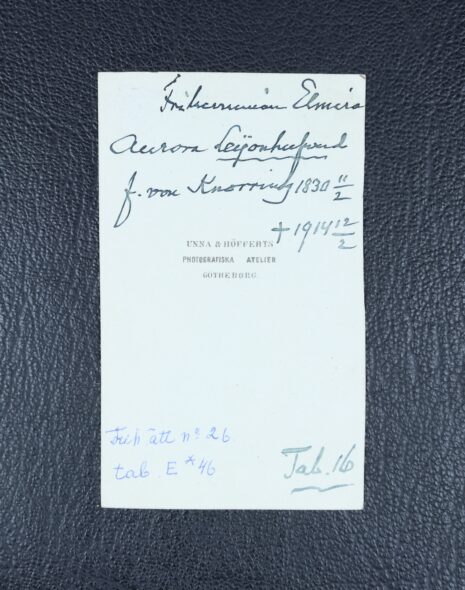 Friherrinnan Elmira
Aurora Leijonhufvud
f. von Knorring 1830 11/2
† 1914 12/2
UNNA & HÖFFERTS
PHOTOGRAFISKA ATELIER
GÖTHEBORG.
Frih ätt nº 26.
tab. E * 46
Tab. 16